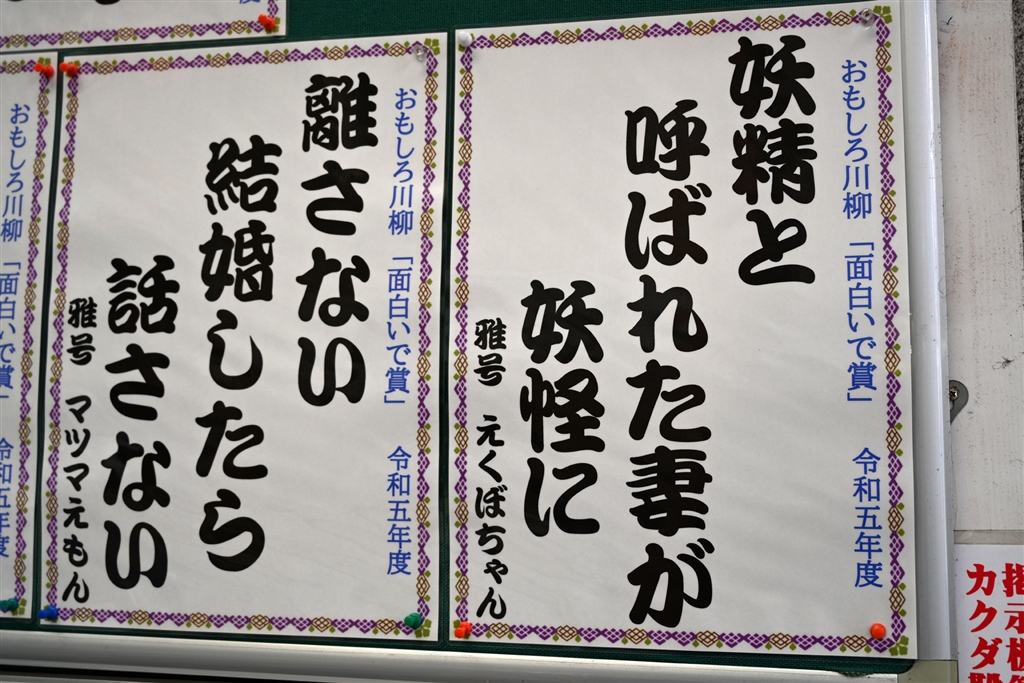 おもしろ川柳 「面白いで賞」 令和五年度
妖精と
呼ばれた妻が
妖怪に
雅号 えくぼちゃん
おもしろ川柳 「面白いで賞」 令和五年度
離さない
結婚したら
話さない
雅号 マツマえもん
おもしろ川柳 「面白いで賞」 令和五年度
カクダ